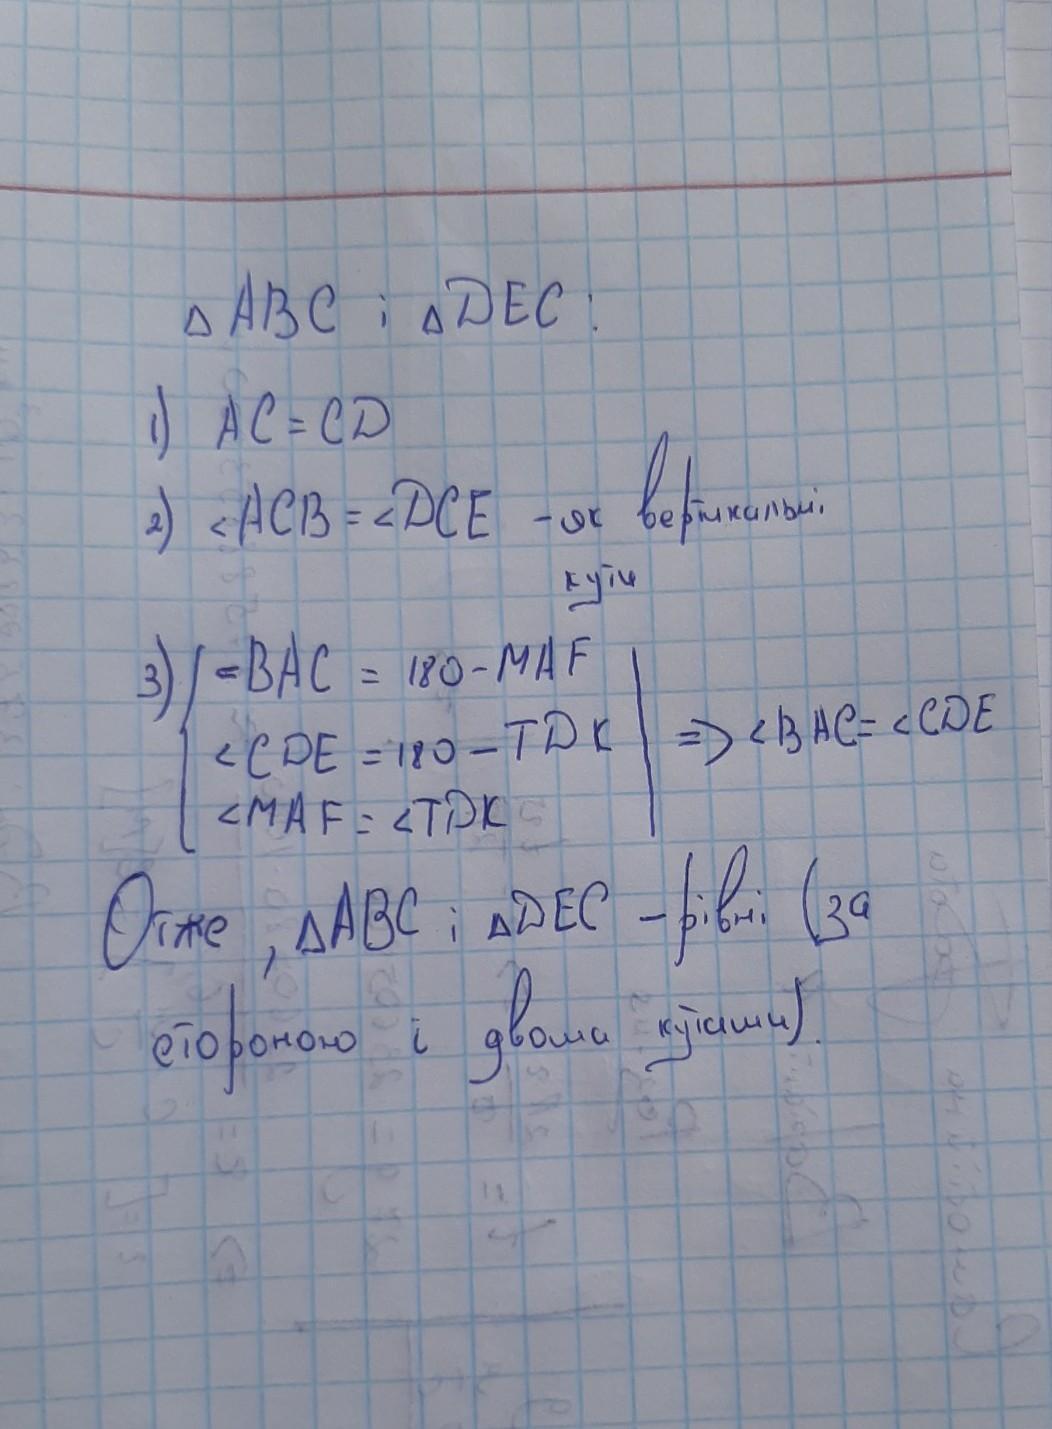 △ABC і △DEC:
1) AC = CD
2) <ACB = <DCE - як вертикальні
кути
3) <BAC = 180 - MAF
<CDE = 180 - TDK
<MAF = <TDK
=> <BAC = <CDE
Отже, △ABC і △DEC - рівні (за
стороною і двома кутами).